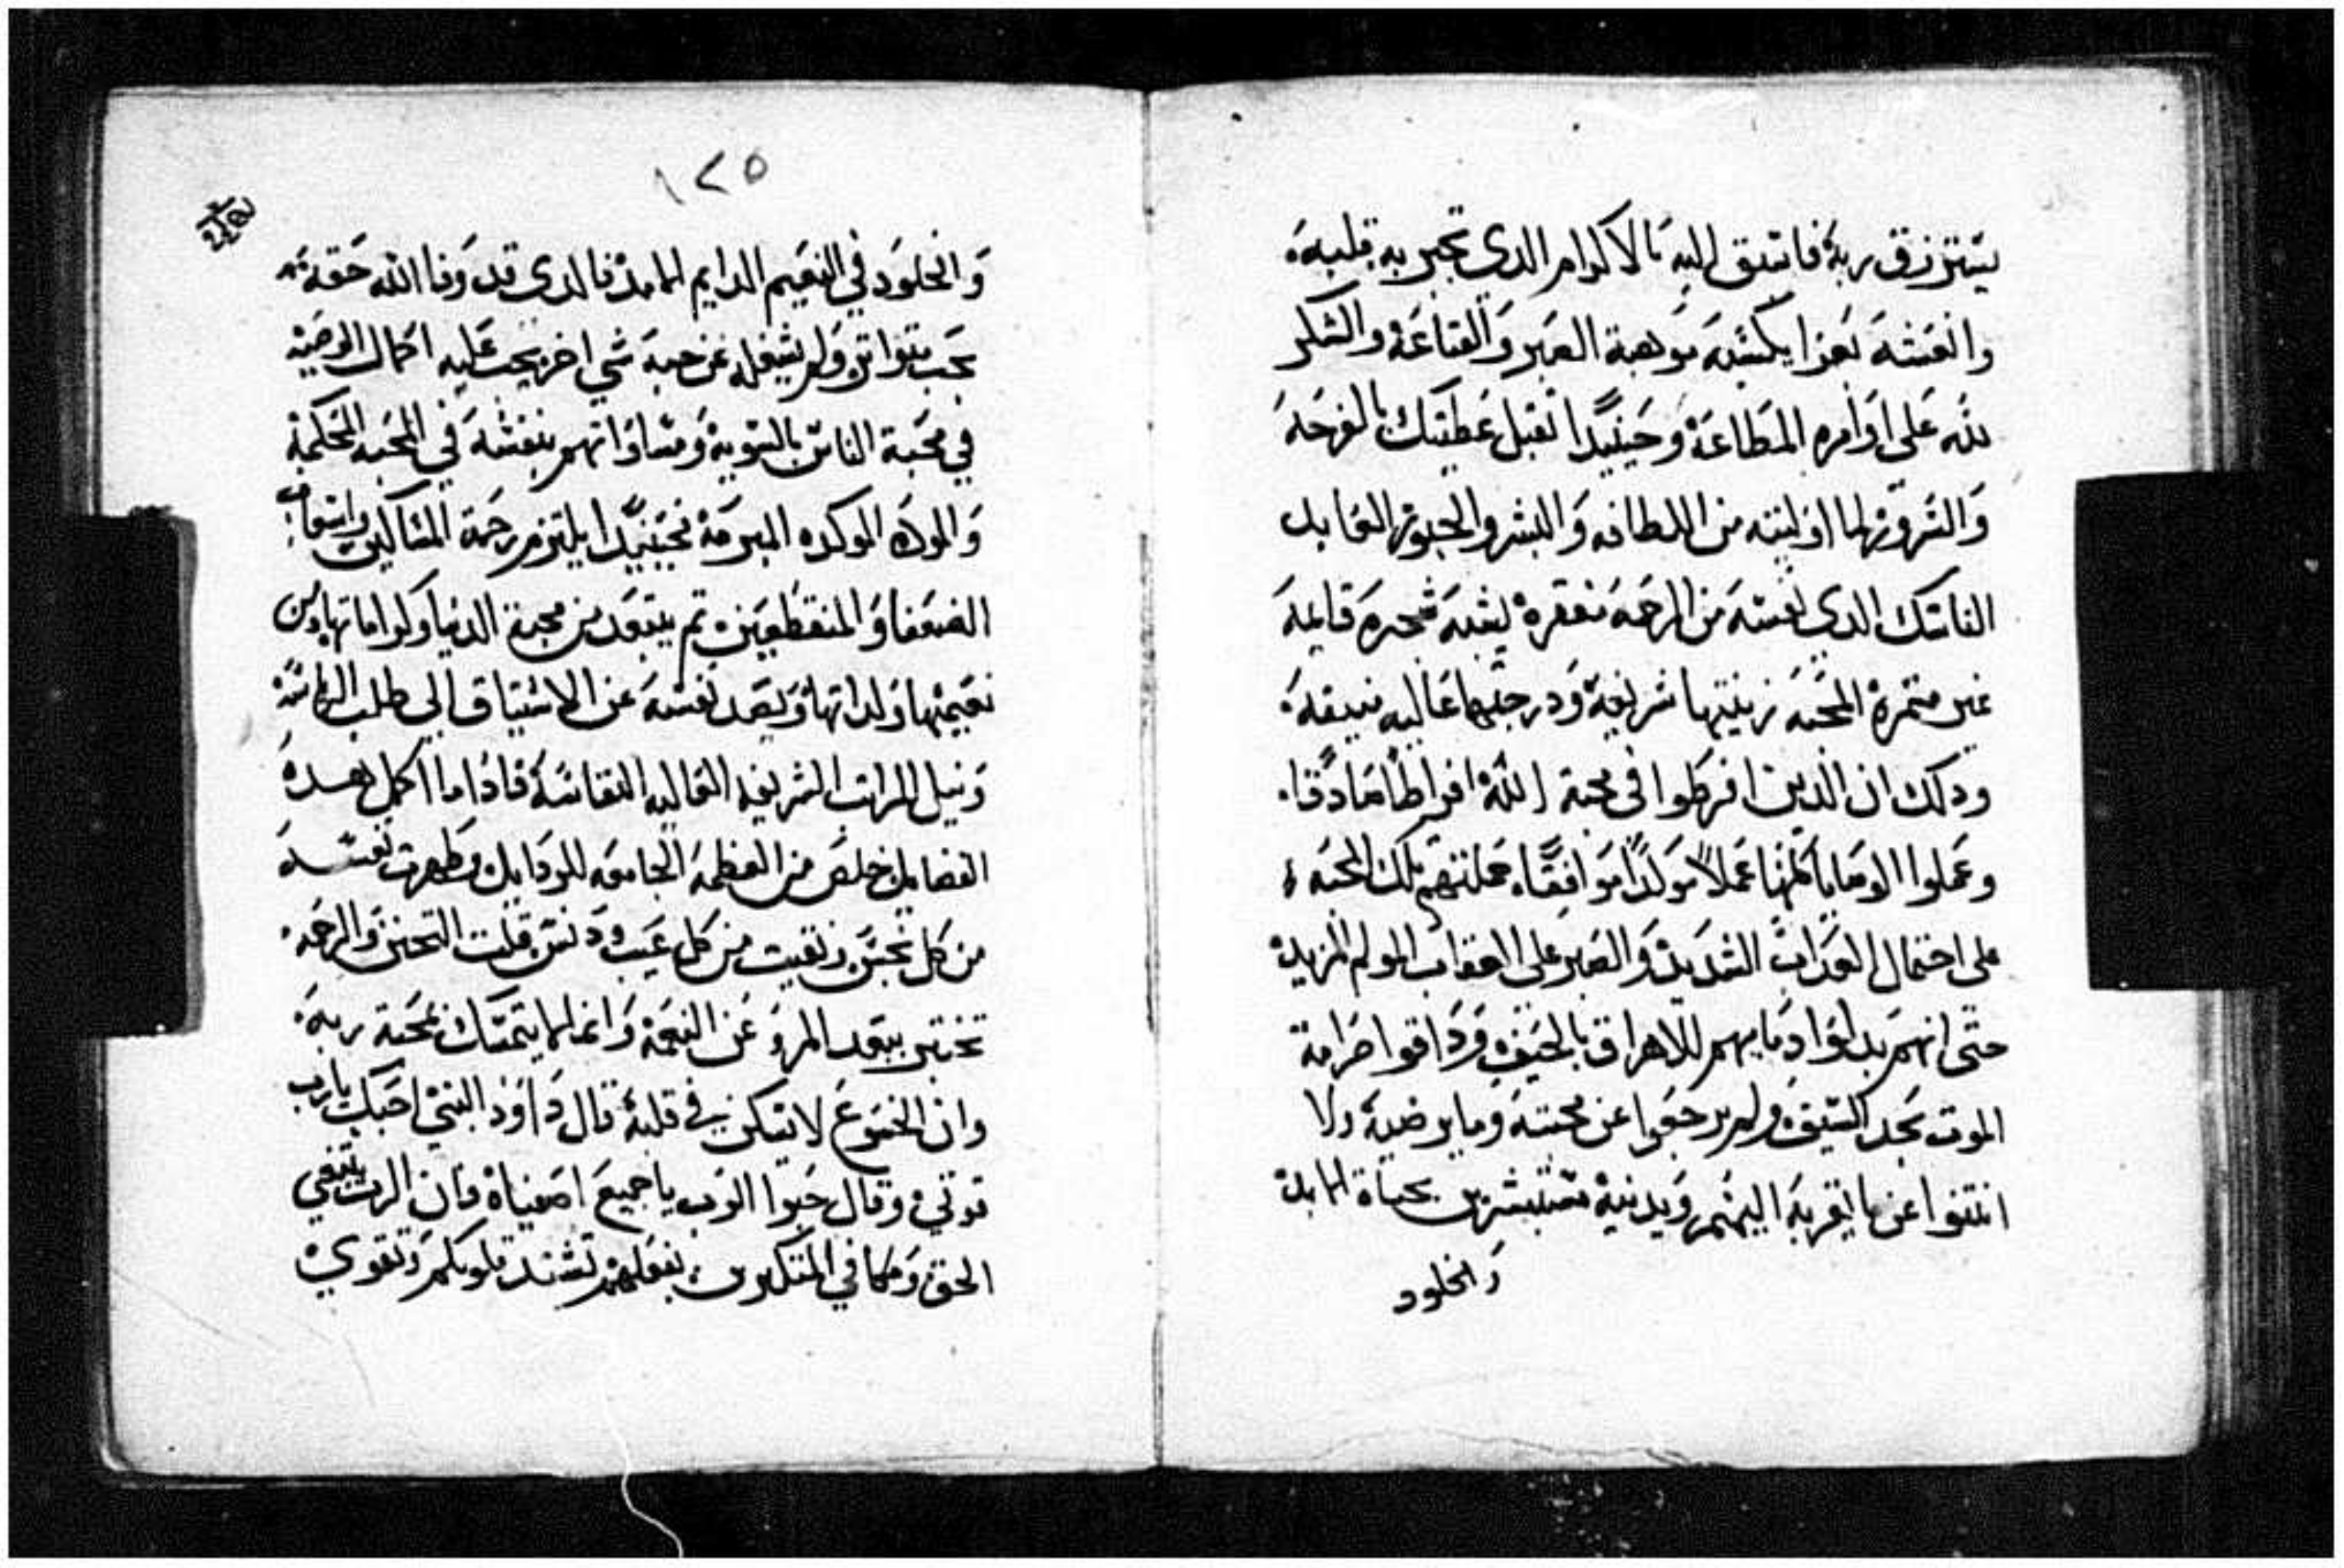 يسترزق ربه فاسبق اليه بالاكرام الدي تجبر به قلبه
وانفسه بعزا يكسبه موهبة الصبر والقناعة والشكر
لله على اوامره المطاعة وحينيدا تقبل عطيتك بالفرحه
والسرور لما اوليته من اللطافه والبشر والحبور العابد
الناسك الدي نفسه من الرحمه مقفره يشبه شجره قايمه
غير متمره المحبه زينتها شريفة ودرجتها عاليه منيفه
ودلك ان الدين افرطوا في محبة الله افراطا صادقا
وعملوا الوصايا كلها عملا موكدا موافقا حملتهم تلك المحبه
على احتمال العداب الشديد والصبر على العقاب المولم المزيد
حتى انهم بدلوا دمايهم للاهراق بالحيف ودداقوا مرامة
الموت بحد السيف ولم يرجعوا عن محبته وما يرضيه ولا
انتنوا عن ما يقربه اليهم ويدنيه مستبشرين بحياة الابد
والخلود
١٢٥
والخلود في النعيم الدايم الامد فالدي قد وفا الله حقه
بحب متواتر ولم يشغله عن حبه شي اخر يجب عليه اكمال الوصيه
في محبة الناس بالسويه ومساواتهم بنفسه في المحبه المحكمة
والموده الموكده المبرمة فحينيدا يلتزم رحمة المساكين واسعاف
الضعفا والمنقطعين تم يبتعد من محبة الدنيا وكراماتها ومن
نعيمها ولداتها ويصد نفسه عن الاشتياق الي طلب الرياسة
ونيل المراتب الشريفه العاليه النفاسة فاداما اكمل هده
الفضايل خلص من العظمه الجامعه للردايل وطهرت نفسه
من كل نجس ونقيت من كل عيب ودنس قلت التحنن والرحمه
تختبر ببعد المرو عن النعمة وانما لم يتمسك بمحبة ربه
وان الخشوع لا يسكن في قلبه قال داوود النبي احبك يارب
قوتي وقال حبوا الرب يا جميع اصفياه فان الرب يبتغي
الحق ومكافي المتكبرين بفعلهم تشتد قلوبكم وتقوي